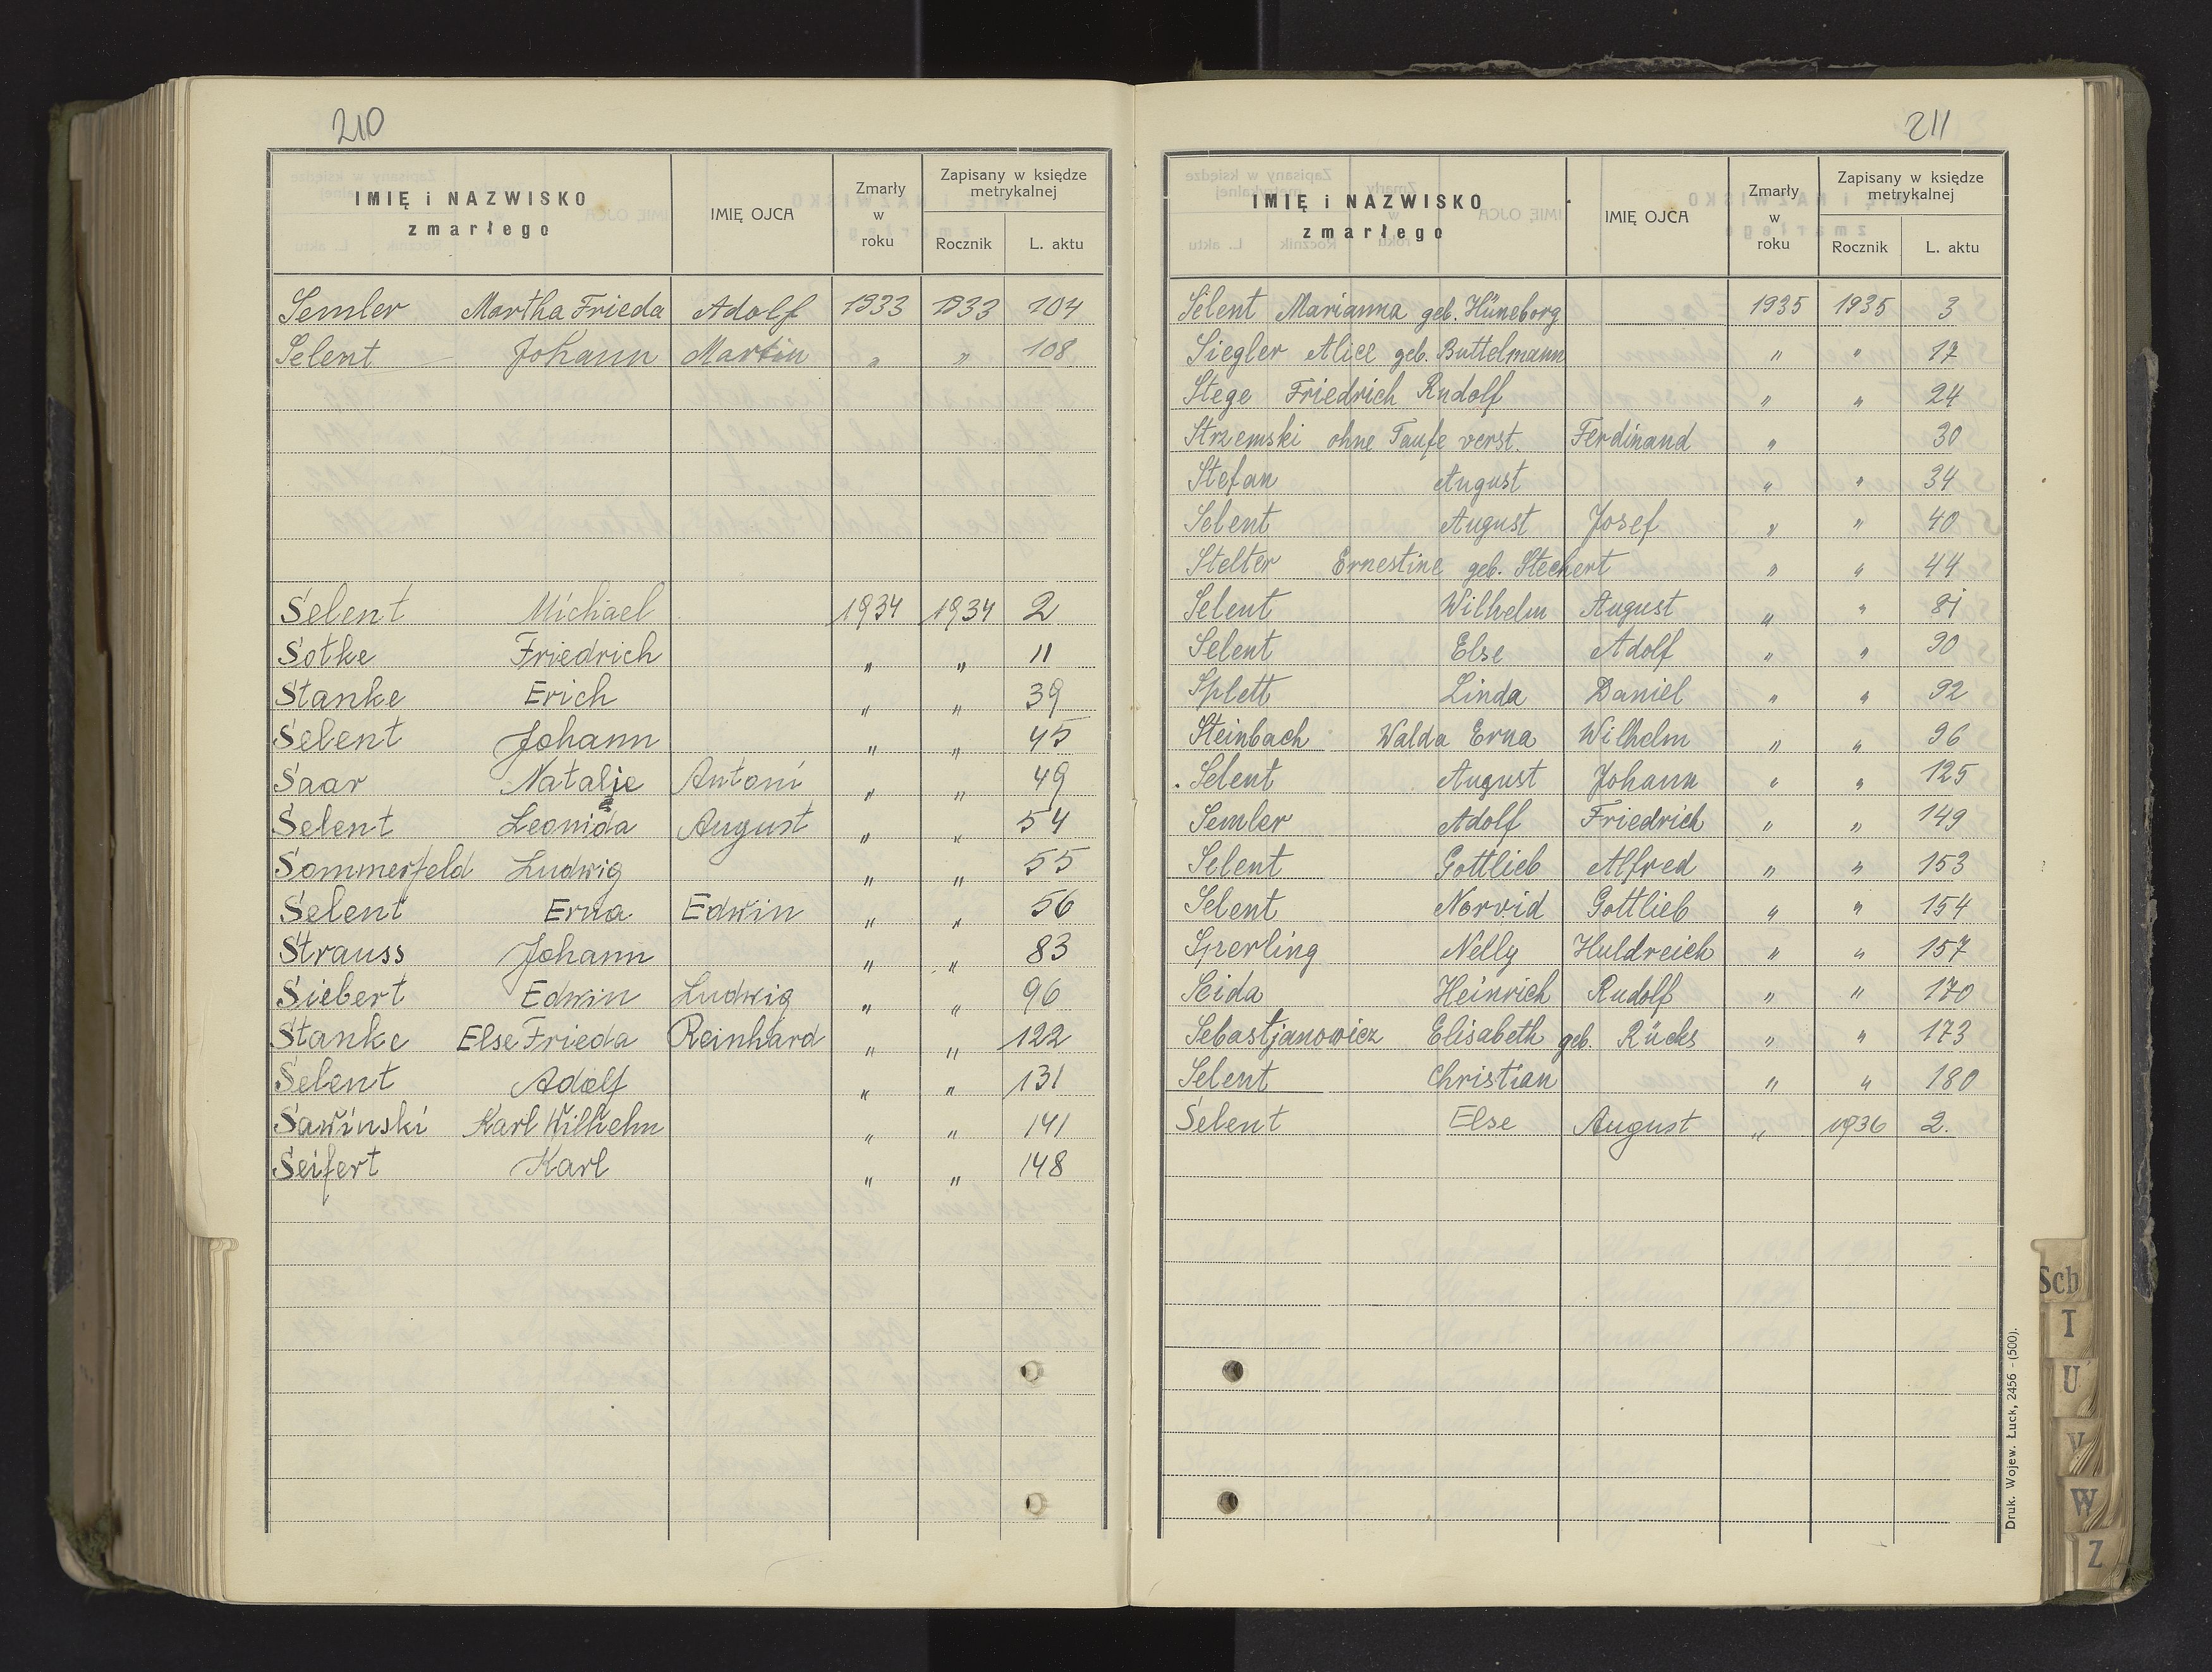 210
IMIĘ i NAZWISKO zmarłego IMIĘ OJCA Zmarły w roku Zapisany w księdze metrykalnej Rocznik L. aktu
Semler Martha Frieda Adolf 1933 1933 104
Selent Johann Martin " " 108
Selent Michael 1934 1934 2
Sotke Friedrich " " 11
Stanke Erich " " 39
Selent Johann " " 45
Saar Natalie Antoni " " 49
Selent Leonida August " " 54
Sommerfeld Ludwig " " 55
Selent Erna Edwin " " 56
Strauss Johann " " 83
Siebert Edwin Ludwig " " 96
Stanke Else Frieda Reinhard " " 122
Selent Adolf " " 131
Sawinski Karl Wilhelm " " 141
Seifert Karl " " 148
211
IMIĘ i NAZWISKO zmarłego IMIĘ OJCA Zmarły w roku Zapisany w księdze metrykalnej Rocznik L. aktu
Selent Marianna geb. Hüneborg 1935 1935 3
Siegler Alice geb. Buttelmann " " 17
Stege Friedrich Rudolf " " 24
Strzemski ohne Taufe verst. Ferdinand " 30
Stefan August " " 34
Selent August Josef " " 40
Stelter Ernestine geb. Stechert " " 44
Selent Wilhelm August " " 81
Selent Else Adolf " " 90
Splett Linda Daniel " " 92
Steinbach Walda Erna Wilhelm " " 96
Selent August Johann " " 125
Semler Adolf Friedrich " " 149
Selent Gottlieb Alfred " " 153
Selent Norvid Gottlieb " " 154
Sperling Nelly Huldreich " " 157
Seida Heinrich Rudolf " " 170
Sebastjanowicz Elisabeth geb. Rücks " " 173
Selent Christian " " 180
Selent Else August " 1936 2.
Druk. Wojew. Łuck, 2456 - (500).
Sch
T
U
V
W
Z